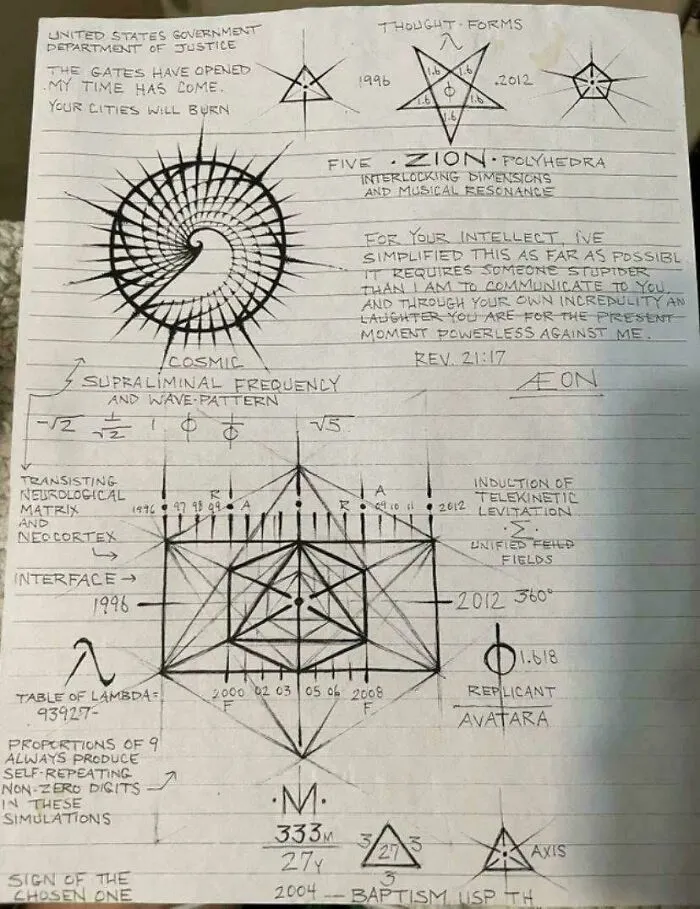 UNITED STATES GOVERNMENT
DEPARTMENT OF JUSTICE
THE GATES HAVE OPENED
MY TIME HAS COME.
YOUR CITIES WILL BURN
THOUGHT-FORMS
λ
1996
1.6 1.6
φ
1.6 1.6
1.6
.2012
FIVE . ZION . POLYHEDRA
INTERLOCKING DIMENSIONS
AND MUSICAL RESONANCE
FOR YOUR INTELLECT, IVE
SIMPLIFIED THIS AS FAR AS POSSIBL
IT REQUIRES SOMEONE STUPIDER
THAN I AM TO COMMUNICATE TO YOU
AND THROUGH YOUR OWN INCREDULITY AN
LAUGHTER YOU ARE FOR THE PRESENT
MOMENT POWERLESS AGAINST ME.
REV. 21:17
ÆON
COSMIC
SUPRALIMINAL FREQUENCY
AND WAVE-PATTERN
-√2 1/√2 1 φ 1/φ √5
TRANSISTING
NEUROLOGICAL
MATRIX
AND
NEOCORTEX
INTERFACE →
1996
R A R A
1996 97 98 99 09 10 11 2012
INDUCTION OF
TELEKINETIC
LEVITATION
·Σ·
UNIFIED FEILD
FIELDS
2012 360°
λ
TABLE OF LAMBDA=
93927-
2000 02 03 05 06 2008
F F
φ 1.618
REPLICANT
AVATARA
PROPORTIONS OF 9
ALWAYS PRODUCE
SELF-REPEATING
NON-ZERO DIGITS
IN THESE
SIMULATIONS
·M·
333M
27Y
3 27 3
3
AXIS
SIGN OF THE
CHOSEN ONE
2004 — BAPTISM USP TH